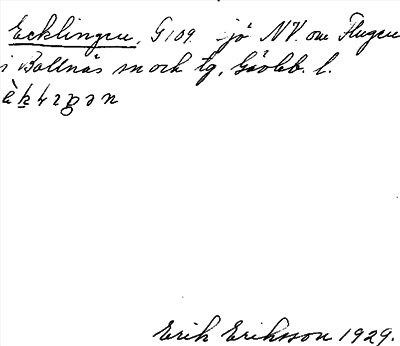 Ecklingen, G109. sjö NV. om Flugen
i Bollnäs sn och tg, Gävleb. l.
Erik Eriksson 1929.